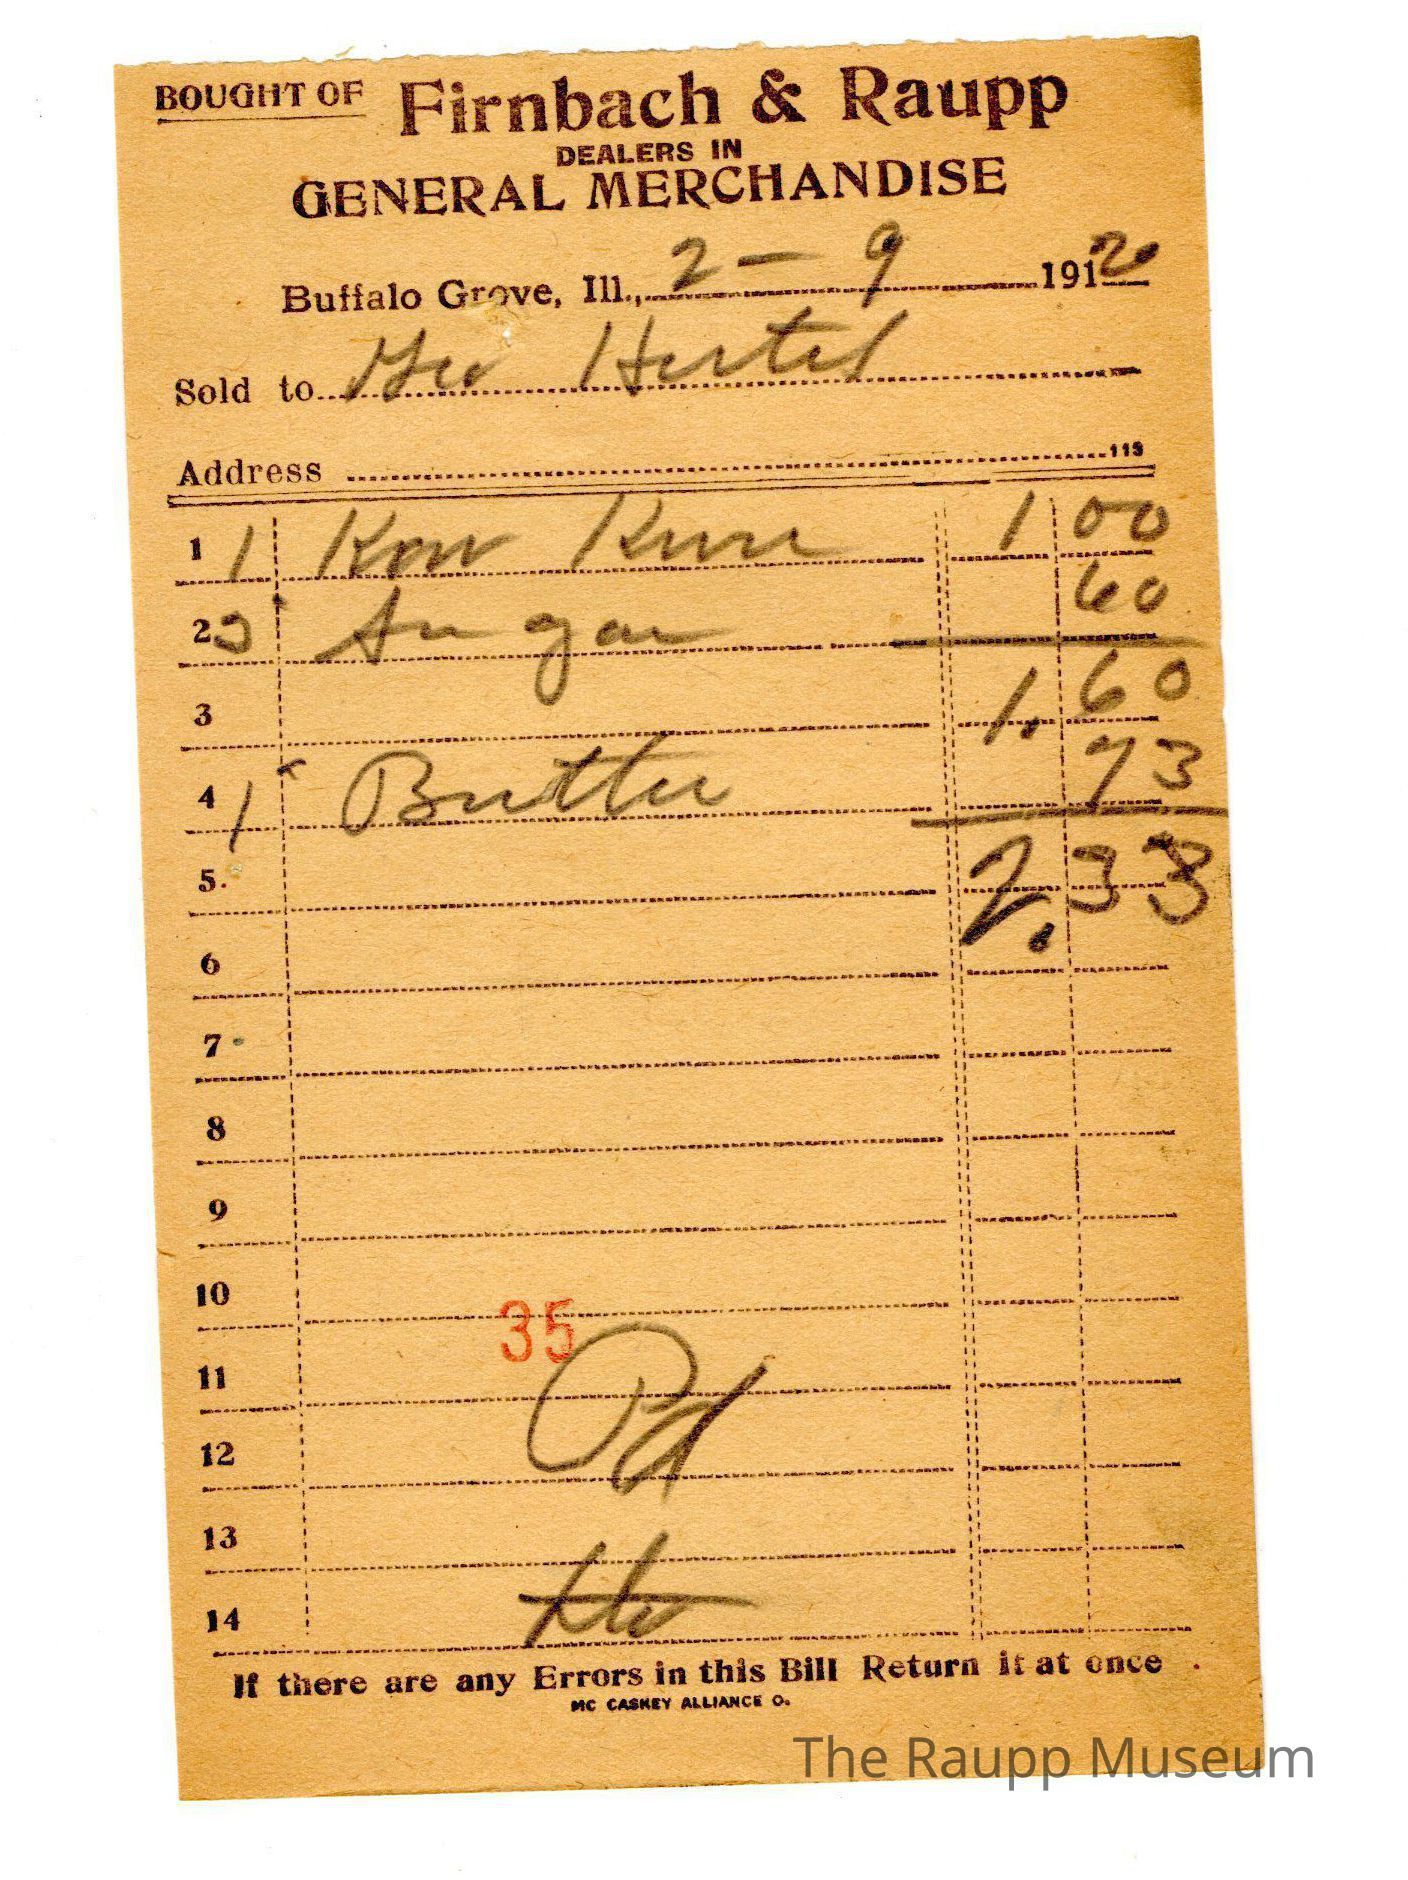 BOUGHT OF Firnbach & Raupp
DEALERS IN
GENERAL MERCHANDISE
Buffalo Grove, Ill., 2 – 9 191 20
Sold to Geo Hertel
Address 113
1 1 Kow Kure 1 00
2 3 Sugar 60
3 1. 60
4 1 Butter 73
5 2. 33
6
7
8
9
10
35
11
Pd
12
13
14
If there are any Errors in this Bill Return it at once
MC CASKEY ALLIANCE O.
The Raupp Museum